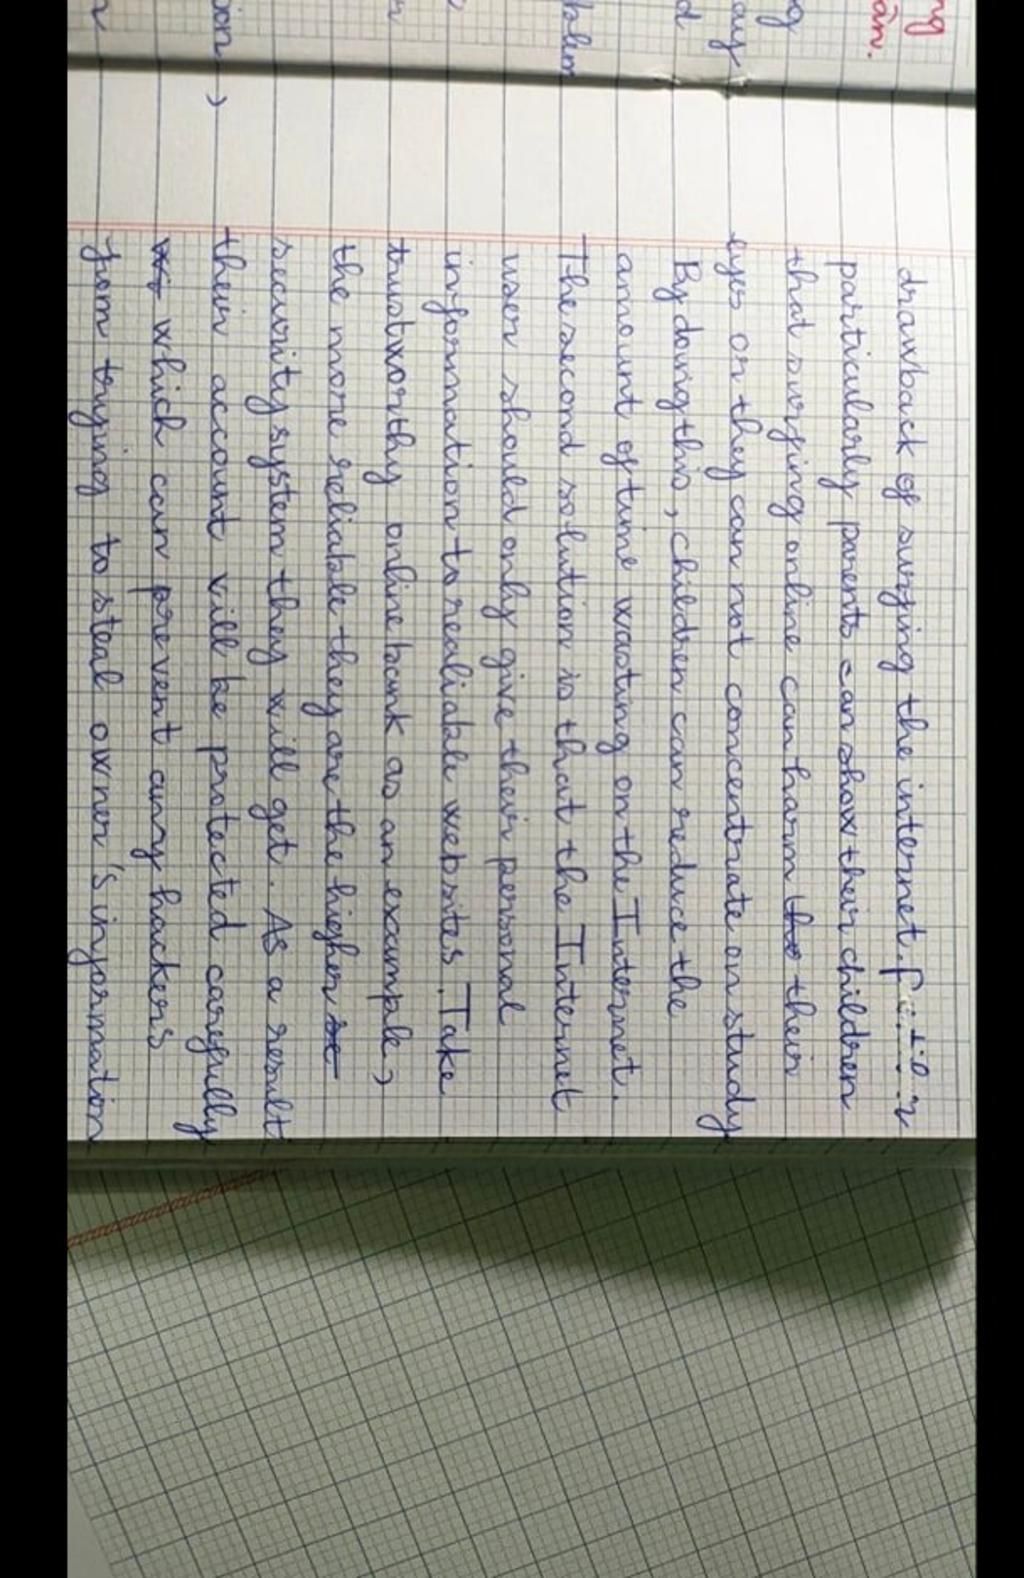 ng
ân.
ng
day
d
blem
ion,
drawback of surfing the internet.
particularly parents can show their children
that surfing online can harm their
eyes or they can not concentrate on study
By doing this, children can reduce the
amount of time wasting on the Internet.
The second solution is that the Internet
user should only give their personal
information to realiable websites. Take
trustworthy online bank as an example,
the more reliable they are the higher
security system they will get. As a result
their account will be protected carefully
which can prevent any hackers
from trying to steal owner's information